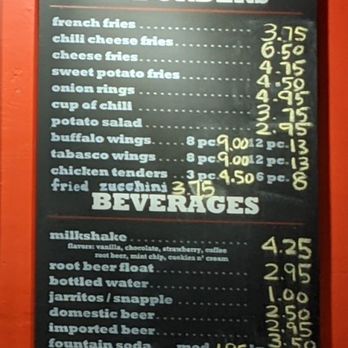 french fries 3.75
chili cheese fries 6.50
cheese fries 4.75
sweet potato fries 4.50
onion rings 4.95
cup of chili 3.75
potato salad 2.95
buffalo wings 8 pc. 9.00 12 pc. 13
tabasco wings 8 pc. 9.00 12 pc. 13
chicken tenders 3 pc. 4.50 6 pc. 8
fried zucchini 3.75
BEVERAGES
milkshake 4.25
flavors: vanilla, chocolate, strawberry, coffee
root beer, mint chip, cookies n' cream
root beer float 2.95
bottled water 1.00
jarritos / snapple 2.50
domestic beer 2.95
imported beer 3.50
fountain soda med